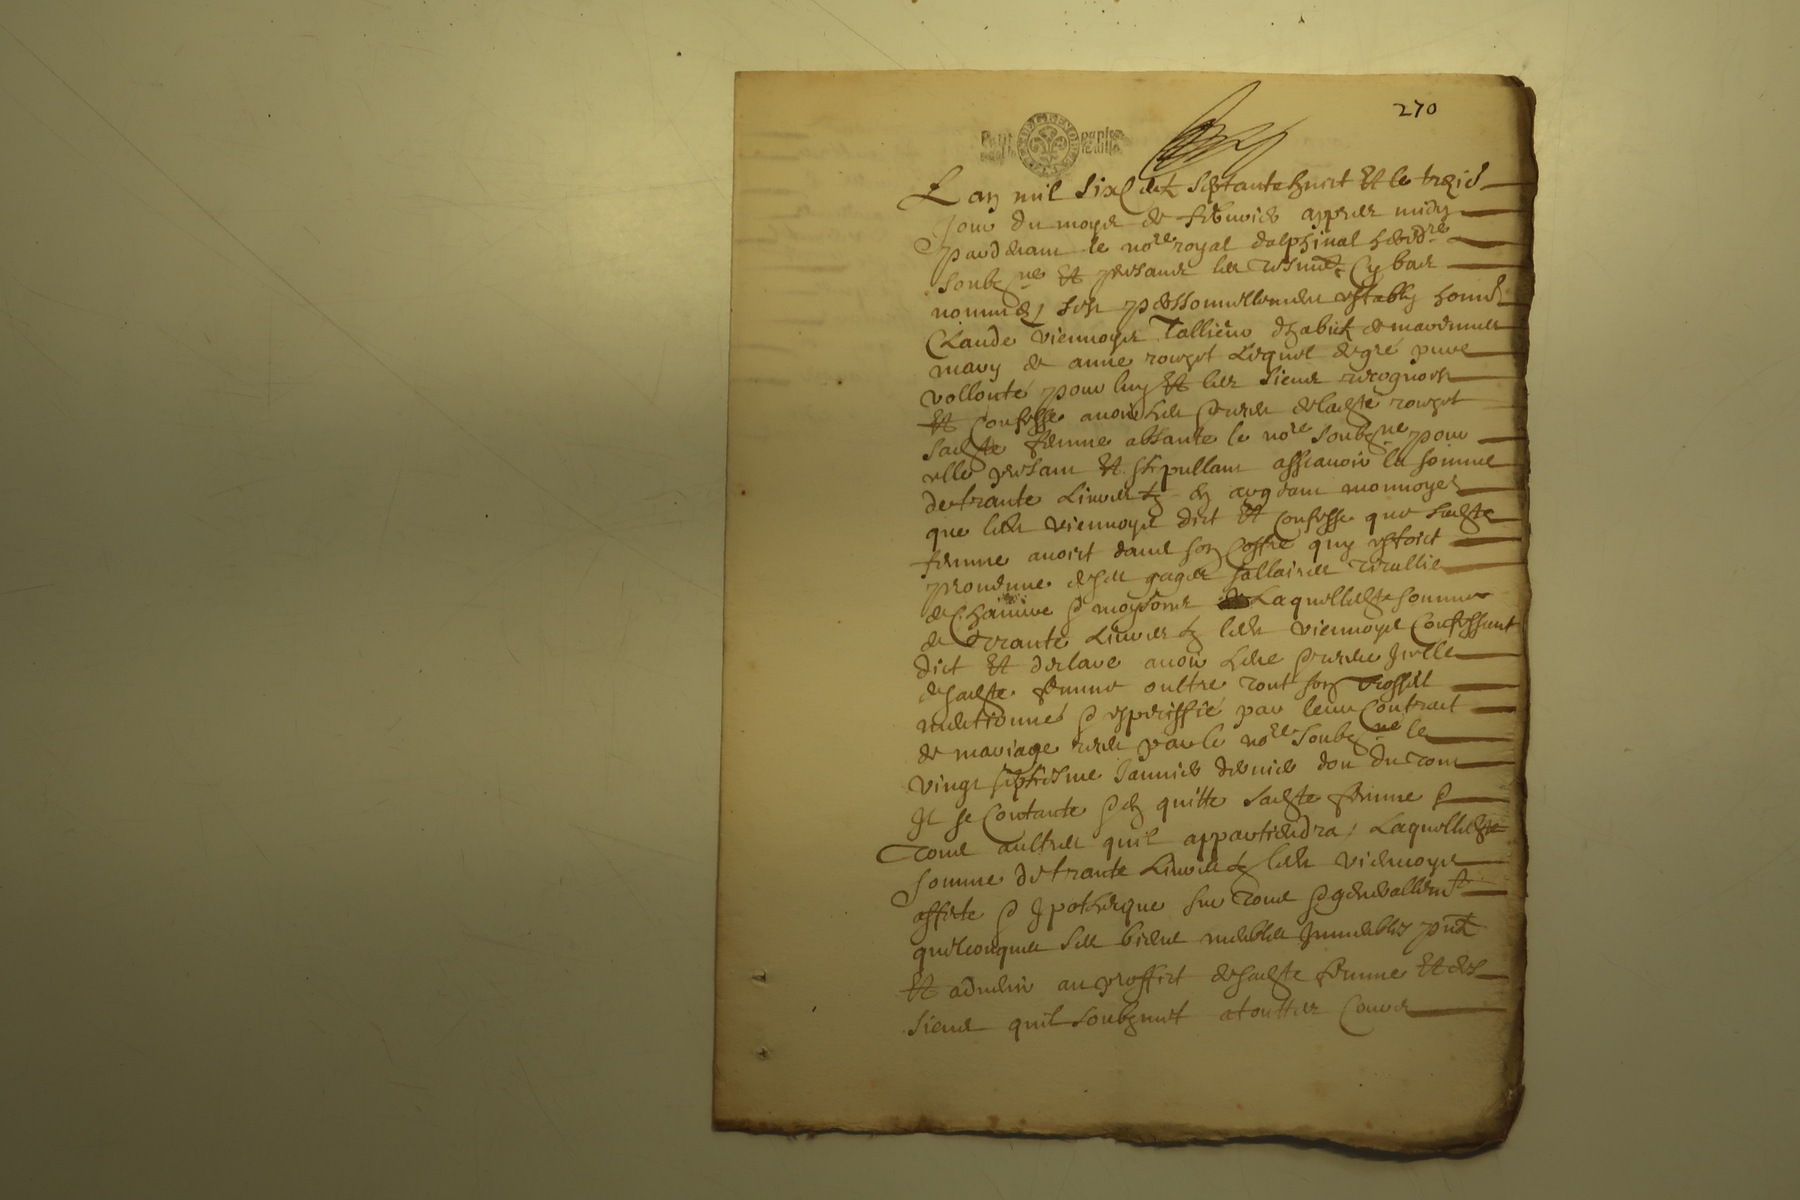 270
L an mil six cent septante huict et le treize
Jour du moys de febvrier appres midy
pardevant le no.re royal dalphinal heredre
soubzne et presants les tesmoets cy bas
nommes, sest personnellement estably honn
Claude viennoys Tallieur dhabitz de
mary de anne lequel de gre pure
vollonte pour luy et les siens recognoist
et confesse avoir heu receu de ladte
sadte femme absante le no.re soubzne pour
elle presant et stipullant assavoir la somme
de trante livres tz en argeant monnoye
que ledt viennoys dict et confesse que sadte
femme avoict dans son coffre quy estoict
provenue de ses gages sallaires
de chanvre & Laquelle dte somme
de trante livres tz ledt viennoys confessant
dict et declare avoir heue receue Jcelle
de sadte femme oultre tout son trossel
mentionné & especiffié par leur contract
de mariage receu par le no.re soubzne le
vingt septiesme Janvier dernier don du tout
Il se contante & en quitte sadte femme &
tous aultres quil appartiendra, Laquelle dte
somme de trante livres tz ledt viennoys
affecte & Jpotheque sur tous & generallemt
quelconques ses biens meubles Jmmeubles pntz
et advenir au proffict de sadte femme et des
siens quil soubzmet a touttes cours